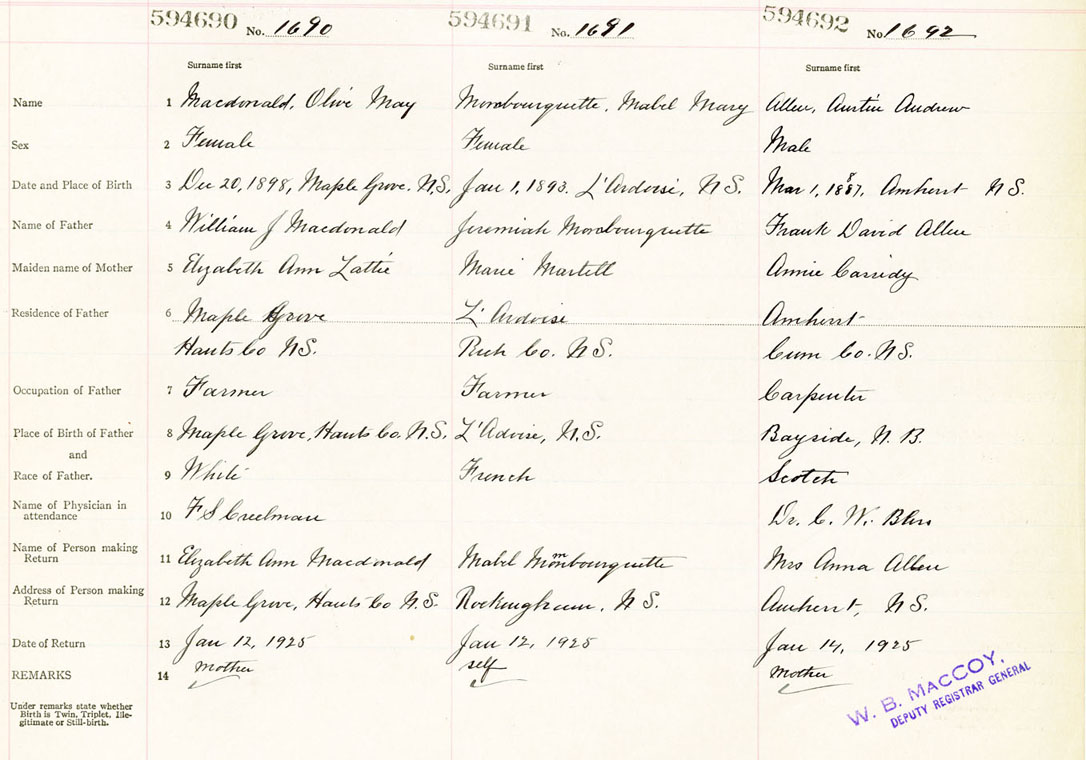 594690 No. 1690 594691 No. 1691 594692 No. 1692
Surname first Surname first Surname first
Name 1 Macdonald, Olive May Mombourquette, Mabel Mary Allen, Austin Andrew
Sex 2 Female Female Male
Date and Place of Birth 3 Dec 20, 1898, Maple Grove. N.S. Jan 1, 1893. L'Ardoise, N.S. Mar 1, 1887, Amherst N S.
Name of Father 4 William J Macdonald Jeremiah Mombourquette Frank David Allen
Maiden name of Mother 5 Elizabeth Ann Lattie Marie Martell Annie Cassidy
Residence of Father 6 Maple Grove L'Ardoise Amherst
Hants Co N.S. Rich Co. N.S. Cum Co. N.S.
Occupation of Father 7 Farmer Farmer Carpenter
Place of Birth of Father 8 Maple Grove, Hants Co. N.S. L'Adoise, N.S. Bayside, N.B.
and
Race of Father. 9 White French Scotch
Name of Physician in
attendance 10 F S Creelman Dr. C. W. Bliss
Name of Person making
Return 11 Elizabeth Ann Macdonald Mabel Mombourquette Mrs Anna Allen
Address of Person making
Return 12 Maple Grove, Hants Co N.S. Rockingham, N S. Amherst, N S.
Date of Return 13 Jan 12, 1925 Jan 12, 1925 Jan 14, 1925
REMARKS 14 mother self mother
Under remarks state whether
Birth is Twin, Triplet, Ille-
gitimate or Still-birth.
W. B. MACCOY,
DEPUTY REGISTRAR GENERAL